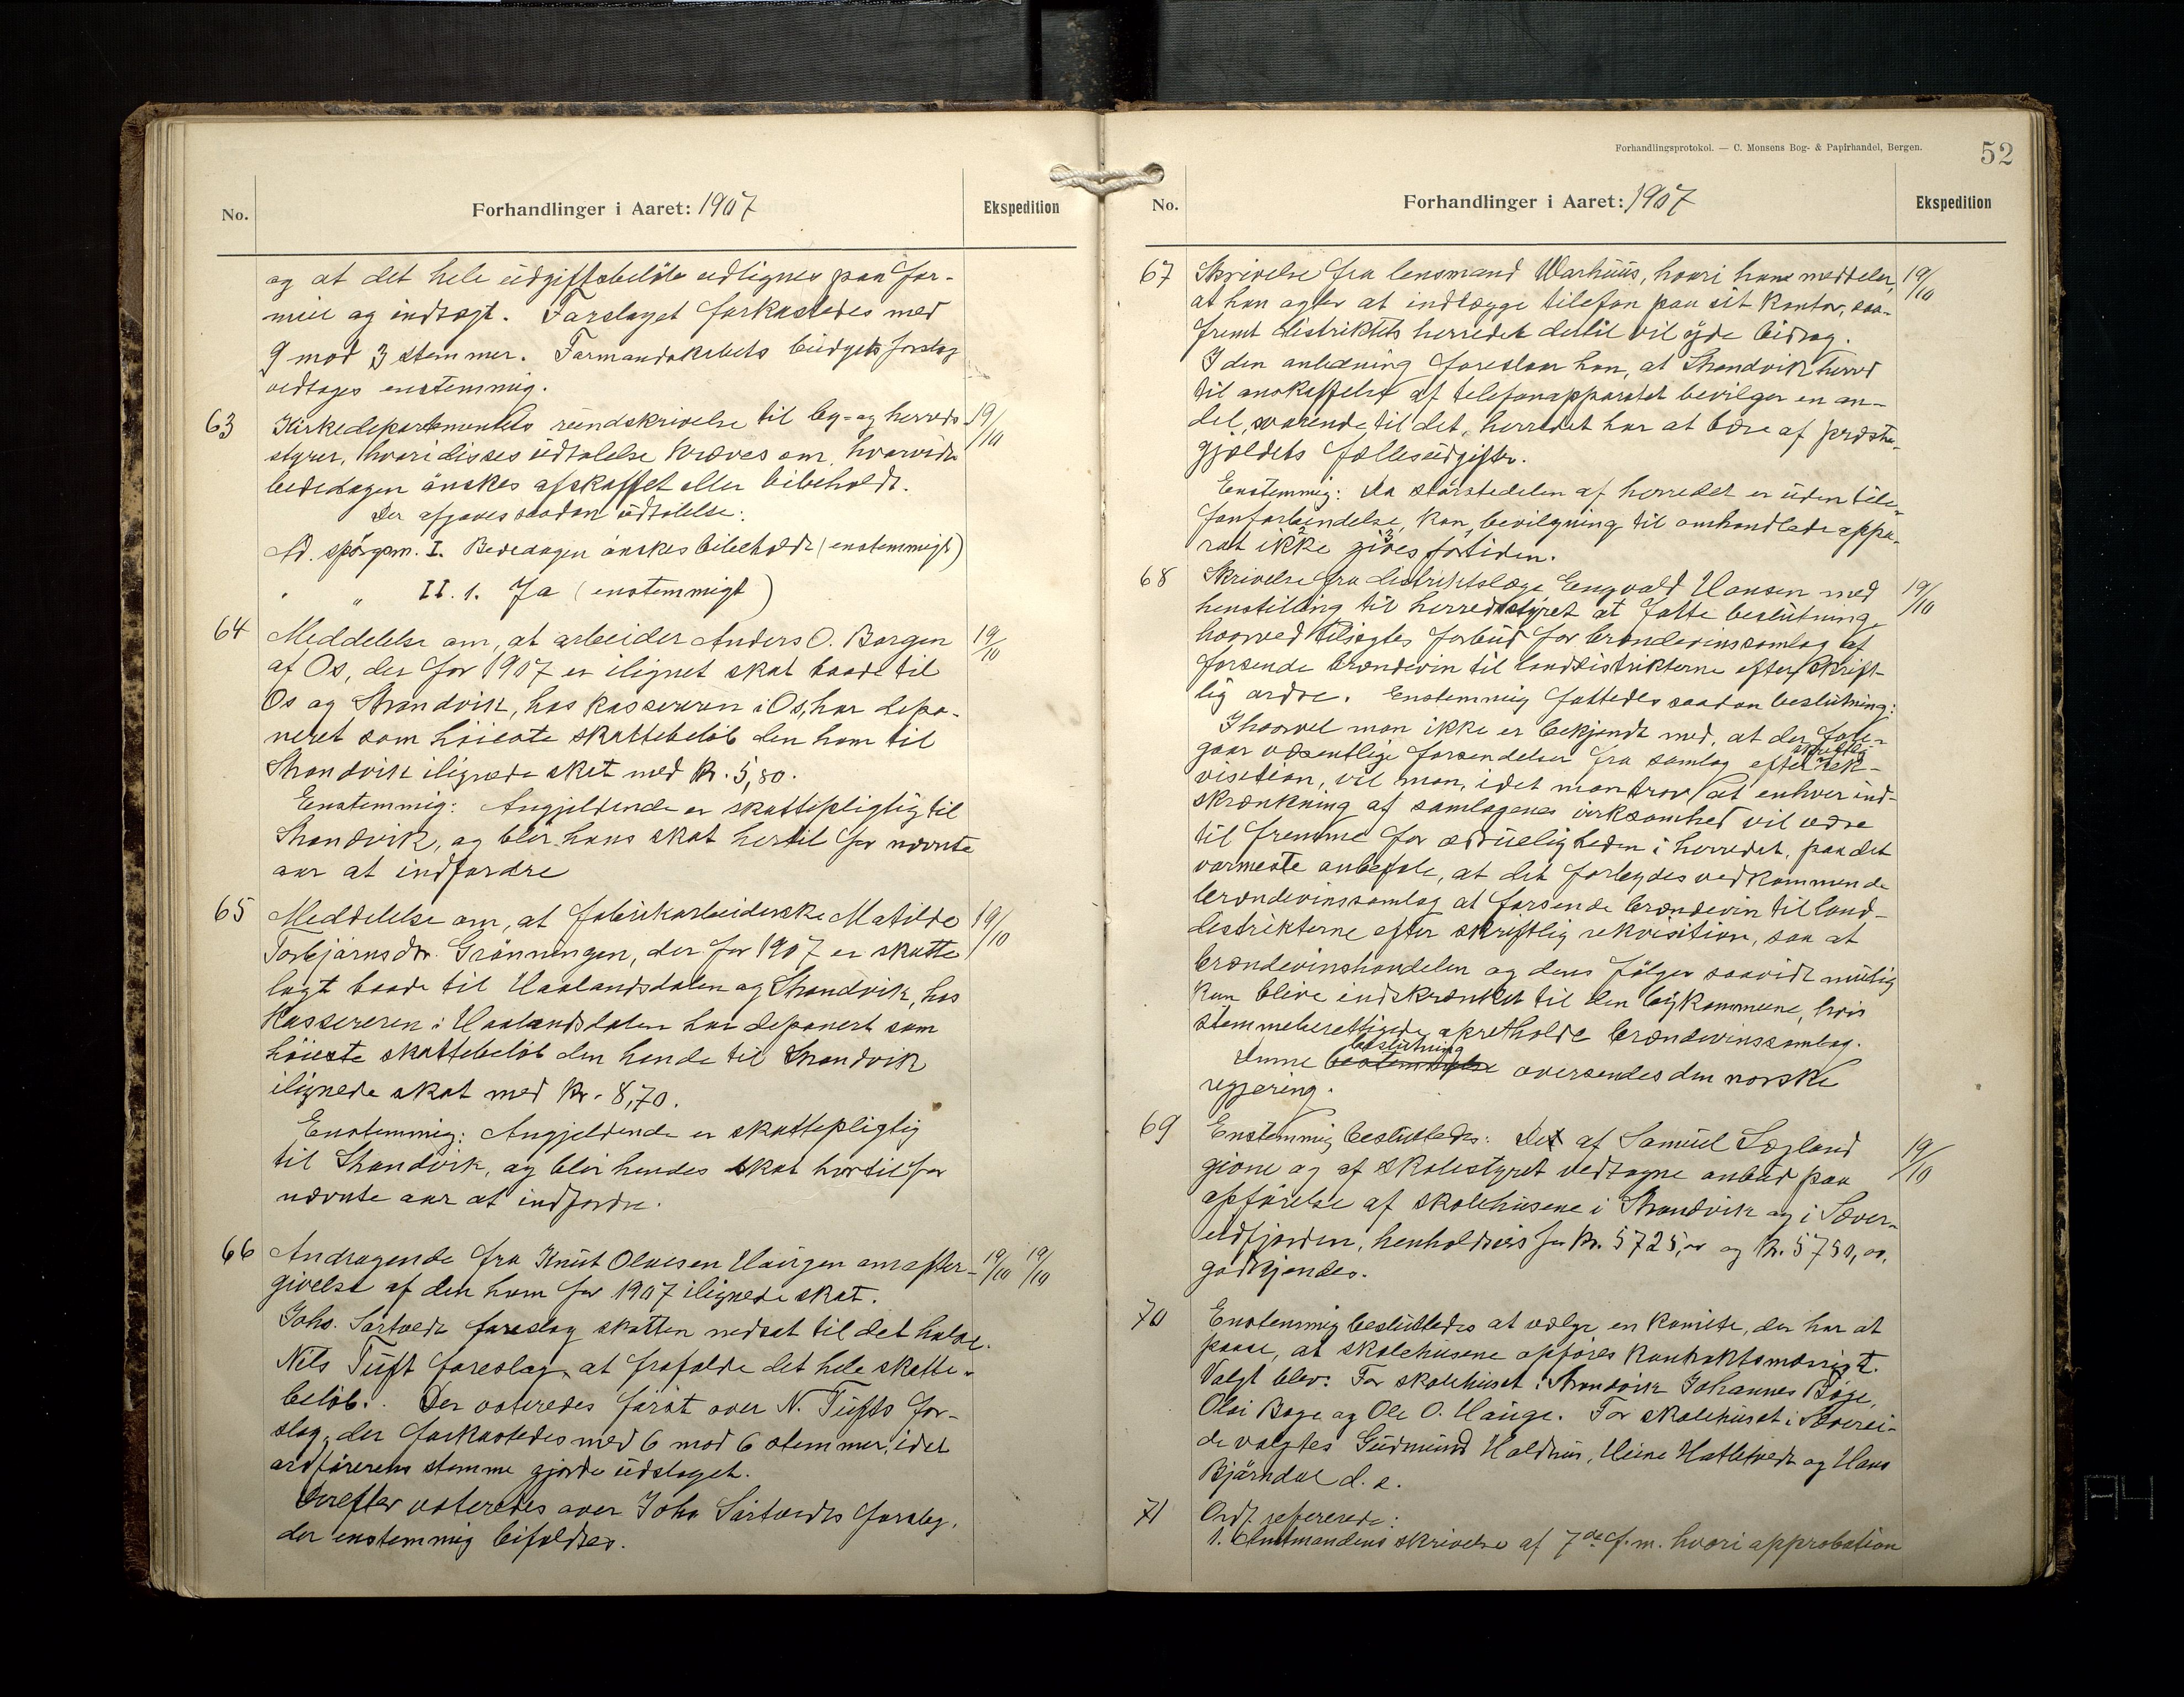 No.
Forhandlinger i Aaret: 1907
Ekspedition
og at det hele udgiftsbeløb udlignes paa for-
mue og indtægt. Forslaget forkastedes med
9 mod 3 stemmer. Formandskabets budgetforslag
vedtoges enstemmig.
63 Kirkedepartementets rundskrivelse til by- og herreds- 19/10
styrer, hvori disses udtalelse kræves om, hvorvidt
bededagen ønskes afskaffet eller bibeholdt.
Der afgaves saadan udtalelse:
Ad. spørgsm. I. Bededagen ønskes bibeholdt (enstemmigt)
" " II. 1. Ja (enstemmigt)
64 Meddelelse om, at arbeider Anders O. Borgen 19/10
af Os, der for 1907 er ilignet skat baade til
Os og Strandvik, hos kassereren i Os, har depo-
neret som høieste skattebeløb den ham til
Strandvik ilignede skat med kr. 5,80.
Enstemmig: Angjeldende er skattepligtig til
Strandvik, og blir hans skat hertil for nævnte
aar at indfordre
65 Meddelelse om, at fabrikarbeiderske Matilde 19/10
Torbjørnsdtr. Grønningen, der for 1907 er skatte
lagt baade til Haalandsdalen og Strandvik, hos
kassereren i Haalandsdalen har deponert som
høieste skattebeløb den hende til Strandvik
ilignede skat med kr. 8,70.
Enstemmig: Angjeldende er skattepligtig
til Strandvik, og blir hendes skat hertil for
nævnte aar at indfordre.
66 Andragende fra Knut Olaesen Haugen om efter- 19/10 19/10
givelse af den ham for 1907 ilignede skat.
Johs. Sørtvedt foreslog skatten nedsat til det halve.
Nils Tuft foreslog, at frafalde det hele skatte-
beløb. Der voteredes først over N. Tufts for-
slag, der forkastedes med 6 mod 6 stemmer, idet
ordførerens stemme gjorde udslaget.
Derefter voteredes over Johs Sørtvedts forslag,
der enstemmig bifaldtes.
Forhandlingsprotokol. — C. Monsens Bog- & Papirhandel, Bergen.
52
No.
Forhandlinger i Aaret: 1907
Ekspedition
67 Skrivelse fra lensmand Warhuus, hvori hans meddeler, 19/10
at han agter at indlægge telefon paa sit kontor, saa-
fremt distriktets herreder dertil vil yde bidrag.
I den anledning foreslaar han, at Strandvik herred
til anskaffelse af telefonapparatet bevilger en an-
del, svarende til det, herredet har at bære af præste-
gjældets fællesudgifter.
Enstemmig: Da størstedelen af herredet er uden tele-
fonforbindelse, kan bevilgning til omhandlede appa-
rat ikke gives fortiden.
68 Skrivelse fra distriktslæge Engvald Hansen med 19/10
henstilling til herredsstyret at fatte beslutning,
hvorved tilsigtes forbud for brændevinssamlag at
forsende brændevin til landdistrikterne efter skrift-
lig ordre. Enstemmig fattedes saadan beslutning:
Ihvorvel man ikke er bekjendt med, at der fore-
gaar væsentlige forsendelser fra samlag efter skriftlig rek-
visition, vil man, idet man tror at enhver ind-
skrænkning af samlagenes virksomhed vil være
til fremme for ædrueligheden i herredet, paa det
varmeste anbefale, at det forbydes vedkommende
brændevinssamlag at forsende brændevin til land-
distrikterne efter skriftlig rekvisition, saa at
brændevinshandelen og dens følger saavidt mulig
kan blive indskrænket til den bykommune, hvis
stemmeberettigede opretholde brændevinssamlag.
Denne bestemmelse beslutning oversendes den norske
regjering.
69 Enstemmig besluttedes: Det af Samuel Lægland 19/10
givne og af skolestyret vedtagne anbud paa
opførelse af skolehusene i Strandvik og i Sæver-
eidfjorden, henholdsvis for kr. 5725,00 og kr. 5750,00,
godkjendes.
70 Enstemmig besluttedes at vælge en komite, der har at
paase, at skolehusene opføres kontraktsmæssigt.
Valgt blev: For skolehuset i Strandvik Johannes Bøge,
Olai Boge og Ole O. Hauge. For skolehuset i Sæverei-
de valgtes Gudmund Haldhus, Heine Hatletvedt og Hans
Bjørndal d. e.
71 Ordf. refererede:
1. Amtmandens skrivelse af 7de f. m. hvori approbation